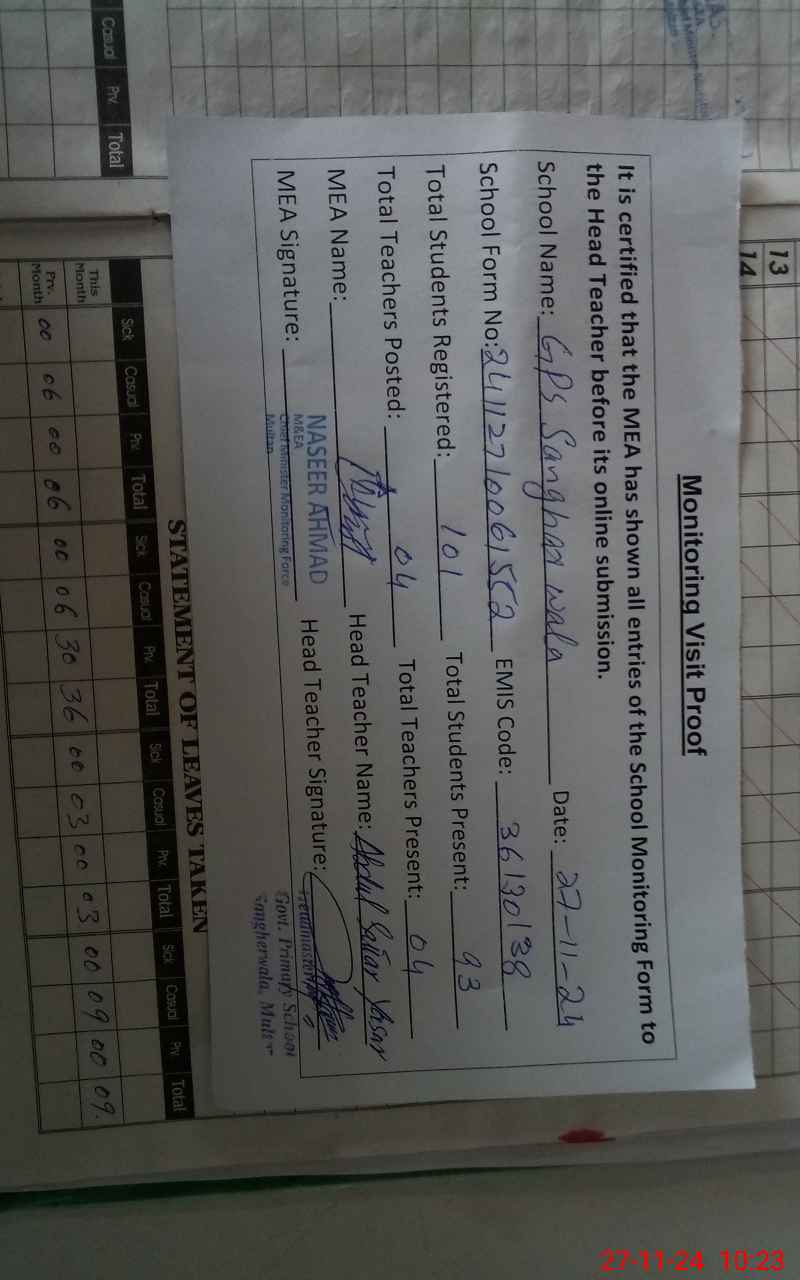 Monitoring Visit Proof
It is certified that the MEA has shown all entries of the School Monitoring Form to
the Head Teacher before its online submission.
School Name: GPS Sanghar wala Date: 27-11-24
School Form No: 24112710061552 EMIS Code: 36130138
Total Students Registered: 101 Total Students Present: 93
Total Teachers Posted: 04 Total Teachers Present: 04
MEA Name: Head Teacher Name: Abdul Sattar Yasar
MEA Signature: Head Teacher Signature:
NASEER AHMAD
M&EA
Chief Minister Monitoring Force
Multan
Headmaster
Govt. Primary School
Sangherwala, Multan
13
14
Casual Prv. Total
STATEMENT OF LEAVES TAKEN
Sick Casual Prv. Total Sick Casual Prv. Total Sick Casual Prv. Total Sick Casual Prv. Total
This Month
Prv. Month 00 06 00 06 00 06 30 36 00 03 00 03 00 09 00 09
27-11-24 10:23